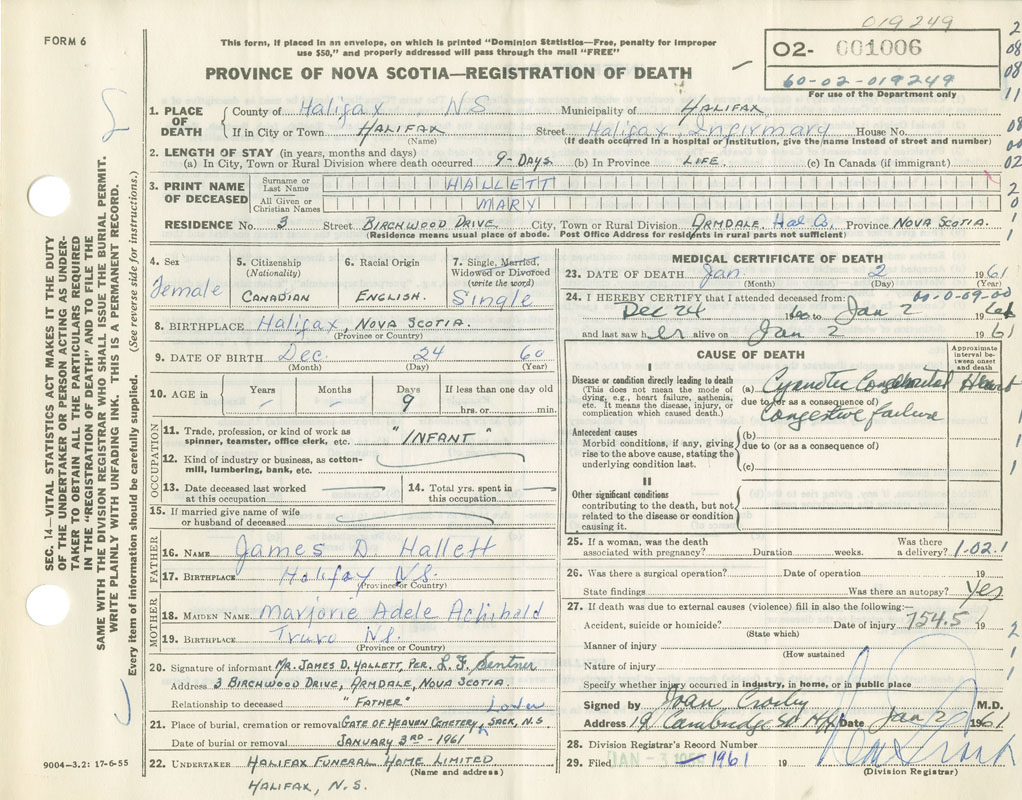 019249
FORM 6
This form, if placed in an envelope, on which is printed "Dominion Statistics—Free, penalty for improper
use $50," and properly addressed will pass through the mail "FREE"
PROVINCE OF NOVA SCOTIA—REGISTRATION OF DEATH
O2- 001006
60-02-019249
For use of the Department only
SEC. 14—VITAL STATISTICS ACT MAKES IT THE DUTY
OF THE UNDERTAKER OR PERSON ACTING AS UNDER-
TAKER TO OBTAIN ALL THE PARTICULARS REQUIRED
IN THE "REGISTRATION OF DEATH" AND TO FILE THE
SAME WITH THE DIVISION REGISTRAR WHO SHALL ISSUE THE BURIAL PERMIT.
WRITE PLAINLY WITH UNFADING INK. THIS IS A PERMANENT RECORD.
Every item of information should be carefully supplied. (See reverse side for instructions.)
1. PLACE OF DEATH County of Halifax, NS Municipality of HALIFAX
If in City or Town HALIFAX Street Halifax Infirmary House No.
(Name) (If death occurred in a hospital or institution, give the name instead of street and number)
2. LENGTH OF STAY (in years, months and days)
(a) In City, Town or Rural Division where death occurred 9-DAYS (b) In Province LIFE. (c) In Canada (if immigrant)
3. PRINT NAME OF DECEASED Surname or Last Name HALLETT
All Given or Christian Names MARY
RESIDENCE No. 3 Street BIRCHWOOD DRIVE City, Town or Rural Division ARMDALE Hal Co. Province NOVA SCOTIA.
(Residence means usual place of abode. Post Office Address for residents in rural parts not sufficient)
4. Sex Female
5. Citizenship (Nationality) CANADIAN
6. Racial Origin ENGLISH.
7. Single, Married, Widowed or Divorced (write the word) Single
8. BIRTHPLACE Halifax, NOVA SCOTIA.
(Province or Country)
9. DATE OF BIRTH Dec. 24 60
(Month) (Day) (Year)
10. AGE in Years — Months — Days 9 If less than one day old hrs. or min.
OCCUPATION
11. Trade, profession, or kind of work as spinner, teamster, office clerk, etc. "INFANT"
12. Kind of industry or business, as cotton-mill, lumbering, bank, etc.
13. Date deceased last worked at this occupation
14. Total yrs. spent in this occupation
15. If married give name of wife or husband of deceased
FATHER
16. NAME James D. Hallett
17. BIRTHPLACE Halifax N.S.
(Province or Country)
MOTHER
18. MAIDEN NAME Marjorie Adele Achibald
19. BIRTHPLACE Truro N.S.
(Province or Country)
20. Signature of informant MR. JAMES D. HALLETT, PER. L. F. Sentner
Address 3 BIRCHWOOD DRIVE, ARMDALE, NOVA SCOTIA.
Relationship to deceased "FATHER"
Lower
21. Place of burial, cremation or removal GATE OF HEAVEN CEMETERY, SACK, N.S.
Date of burial or removal JANUARY 3RD - 1961
22. UNDERTAKER HALIFAX FUNERAL HOME LIMITED
(Name and address)
HALIFAX, N.S.
9004-3.2: 17-6-55
MEDICAL CERTIFICATE OF DEATH
23. DATE OF DEATH Jan. 2 1961
(Month) (Day) (Year)
24. I HEREBY CERTIFY that I attended deceased from: 00-0-09-00
Dec 24 1960 to Jan 2 1961
and last saw her alive on Jan 2 1961
CAUSE OF DEATH
Approximate interval between onset and death
I
Disease or condition directly leading to death
(This does not mean the mode of dying, e.g., heart failure, asthenia, etc. It means the disease, injury, or complication which caused death.)
(a) Cyanotic Congenital Heart
due to (or as a consequence of)
Congestive failure
Antecedent causes
Morbid conditions, if any, giving rise to the above cause, stating the underlying condition last.
(b)
due to (or as a consequence of)
(c)
II
Other significant conditions
contributing to the death, but not related to the disease or condition causing it.
25. If a woman, was the death associated with pregnancy? Duration weeks. Was there a delivery? 1-02.1
26. Was there a surgical operation? Date of operation 19
State findings Was there an autopsy? Yes
27. If death was due to external causes (violence) fill in also the following:—
Accident, suicide or homicide? Date of injury 754.5 19
(State which)
Manner of injury
(How sustained
Nature of injury
Specify whether injury occurred in industry, in home, or in public place
Signed by Joan Crosby M.D.
Address 19 Cambridge St Hfx Date Jan 2 1961
28. Division Registrar's Record Number
29. Filed JAN - 3 1961 19
(Division Registrar)